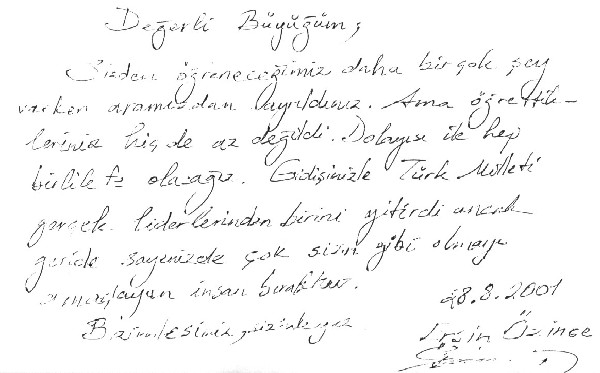 Değerli Büyüğüm,
Sizden öğreneceğimiz daha birçok şey
varken aramızdan ayrıldınız. Ama öğrettik-
leriniz hiç de az değildi. Dolayısı ile hep
birlikte olacağız. Gidişinizle Türk Milleti
gerçek liderlerinden birini yitirdi ancak
geride sayenizde çok sizin gibi olmayı
amaçlayan insan bıraktınız.
28.8.2001
Bizimlesiniz, sizinleyiz.
Özince